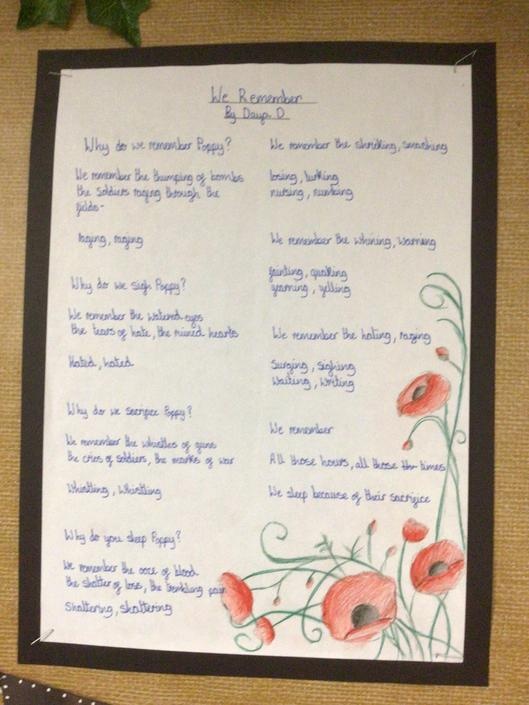 We Remember
By Daya D
Why do we remember Poppy?
We remember the thumping of bombs
the soldiers raging through the
fields-
raging, raging
Why do we sigh Poppy?
We remember the watered eyes
the tears of hate, the ruined hearts
Hated, hated
Why do we sacrifice Poppy?
We remember the whistles of guns
the cries of soldiers, the marks of war
Whistling, Whistling
Why do you sleep Poppy?
We remember the ooze of blood
the shatter of loss, the trembling pain
Shattering, shattering
We remember the shrilling, smashing
losing, lurking
nursing, numbing
We remember the whining, warning
fainting, quaking
yearning, yelling
We remember the hating, raging
Surging, sighing
Waiting, Writing
We remember
All those hours, all those times
We sleep because of their sacrifice